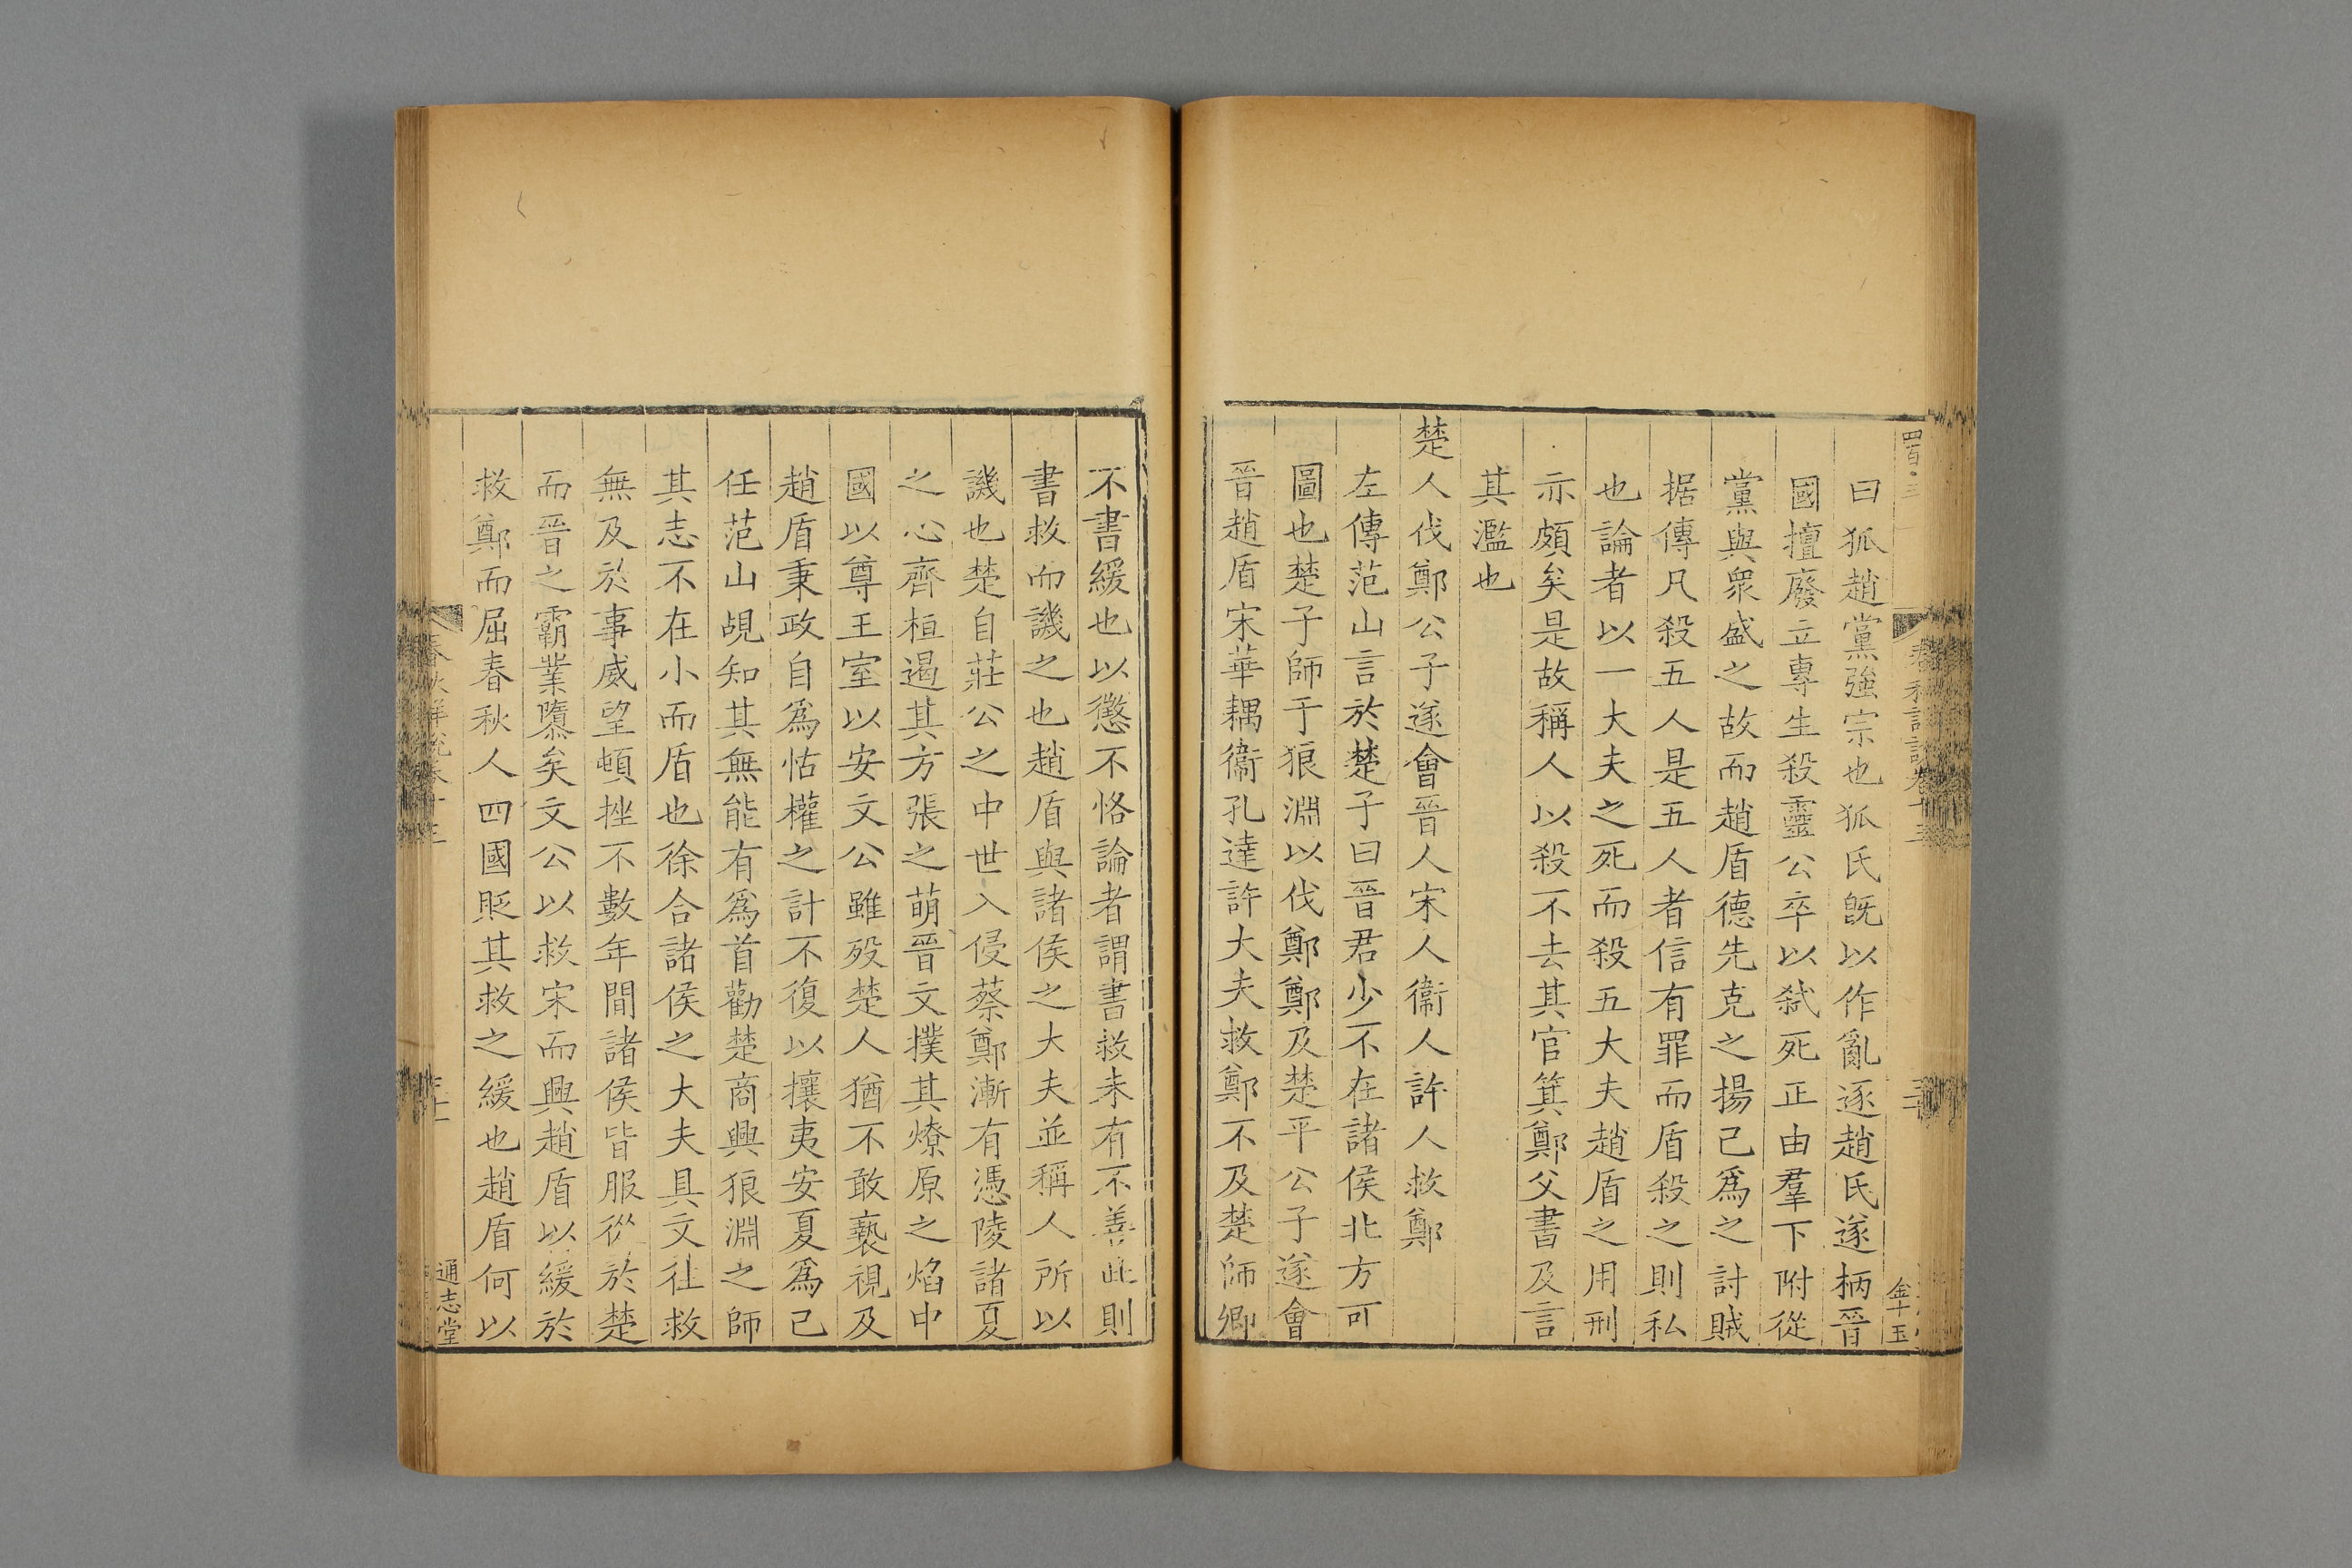 曰狐趙黨強宗也狐氏旣以作亂逐趙氏遂柄晉
國擅廢立專生殺靈公卒以弑死正由羣下附從
黨與衆盛之故而趙盾德先克之揚己爲之討賊
据傳凡殺五人是五人者信有罪而盾殺之則私
也論者以一大夫之死而殺五大夫趙盾之用刑
亦頗矣是故稱人以殺不去其官箕鄭父書及言
其濫也
楚人伐鄭公子遂會晉人宋人衞人許人救鄭
左傳范山言於楚子曰晉君少不在諸侯北方可
圖也楚子師于狼淵以伐鄭鄭及楚平公子遂會
晉趙盾宋華耦衞孔達許大夫救鄭不及楚師卿
不書緩也以懲不恪論者謂書救未有不善此則
書救而譏之也趙盾與諸侯之大夫並稱人所以
譏也楚自莊公之中世入侵蔡鄭漸有憑陵諸夏
之心齊桓遏其方張之萌晉文撲其燎原之焰中
國以尊王室以安文公雖歿楚人猶不敢褻視及
趙盾秉政自爲怙權之計不復以攘夷安夏爲己
任范山覘知其無能有爲首勸楚商興狼淵之師
其志不在小而盾也徐合諸侯之大夫具文往救
無及於事威望頓挫不數年間諸侯皆服從於楚
而晉之霸業隳矣文公以救宋而興趙盾以緩於
救鄭而屈春秋人四國貶其救之緩也趙盾何以
通志堂